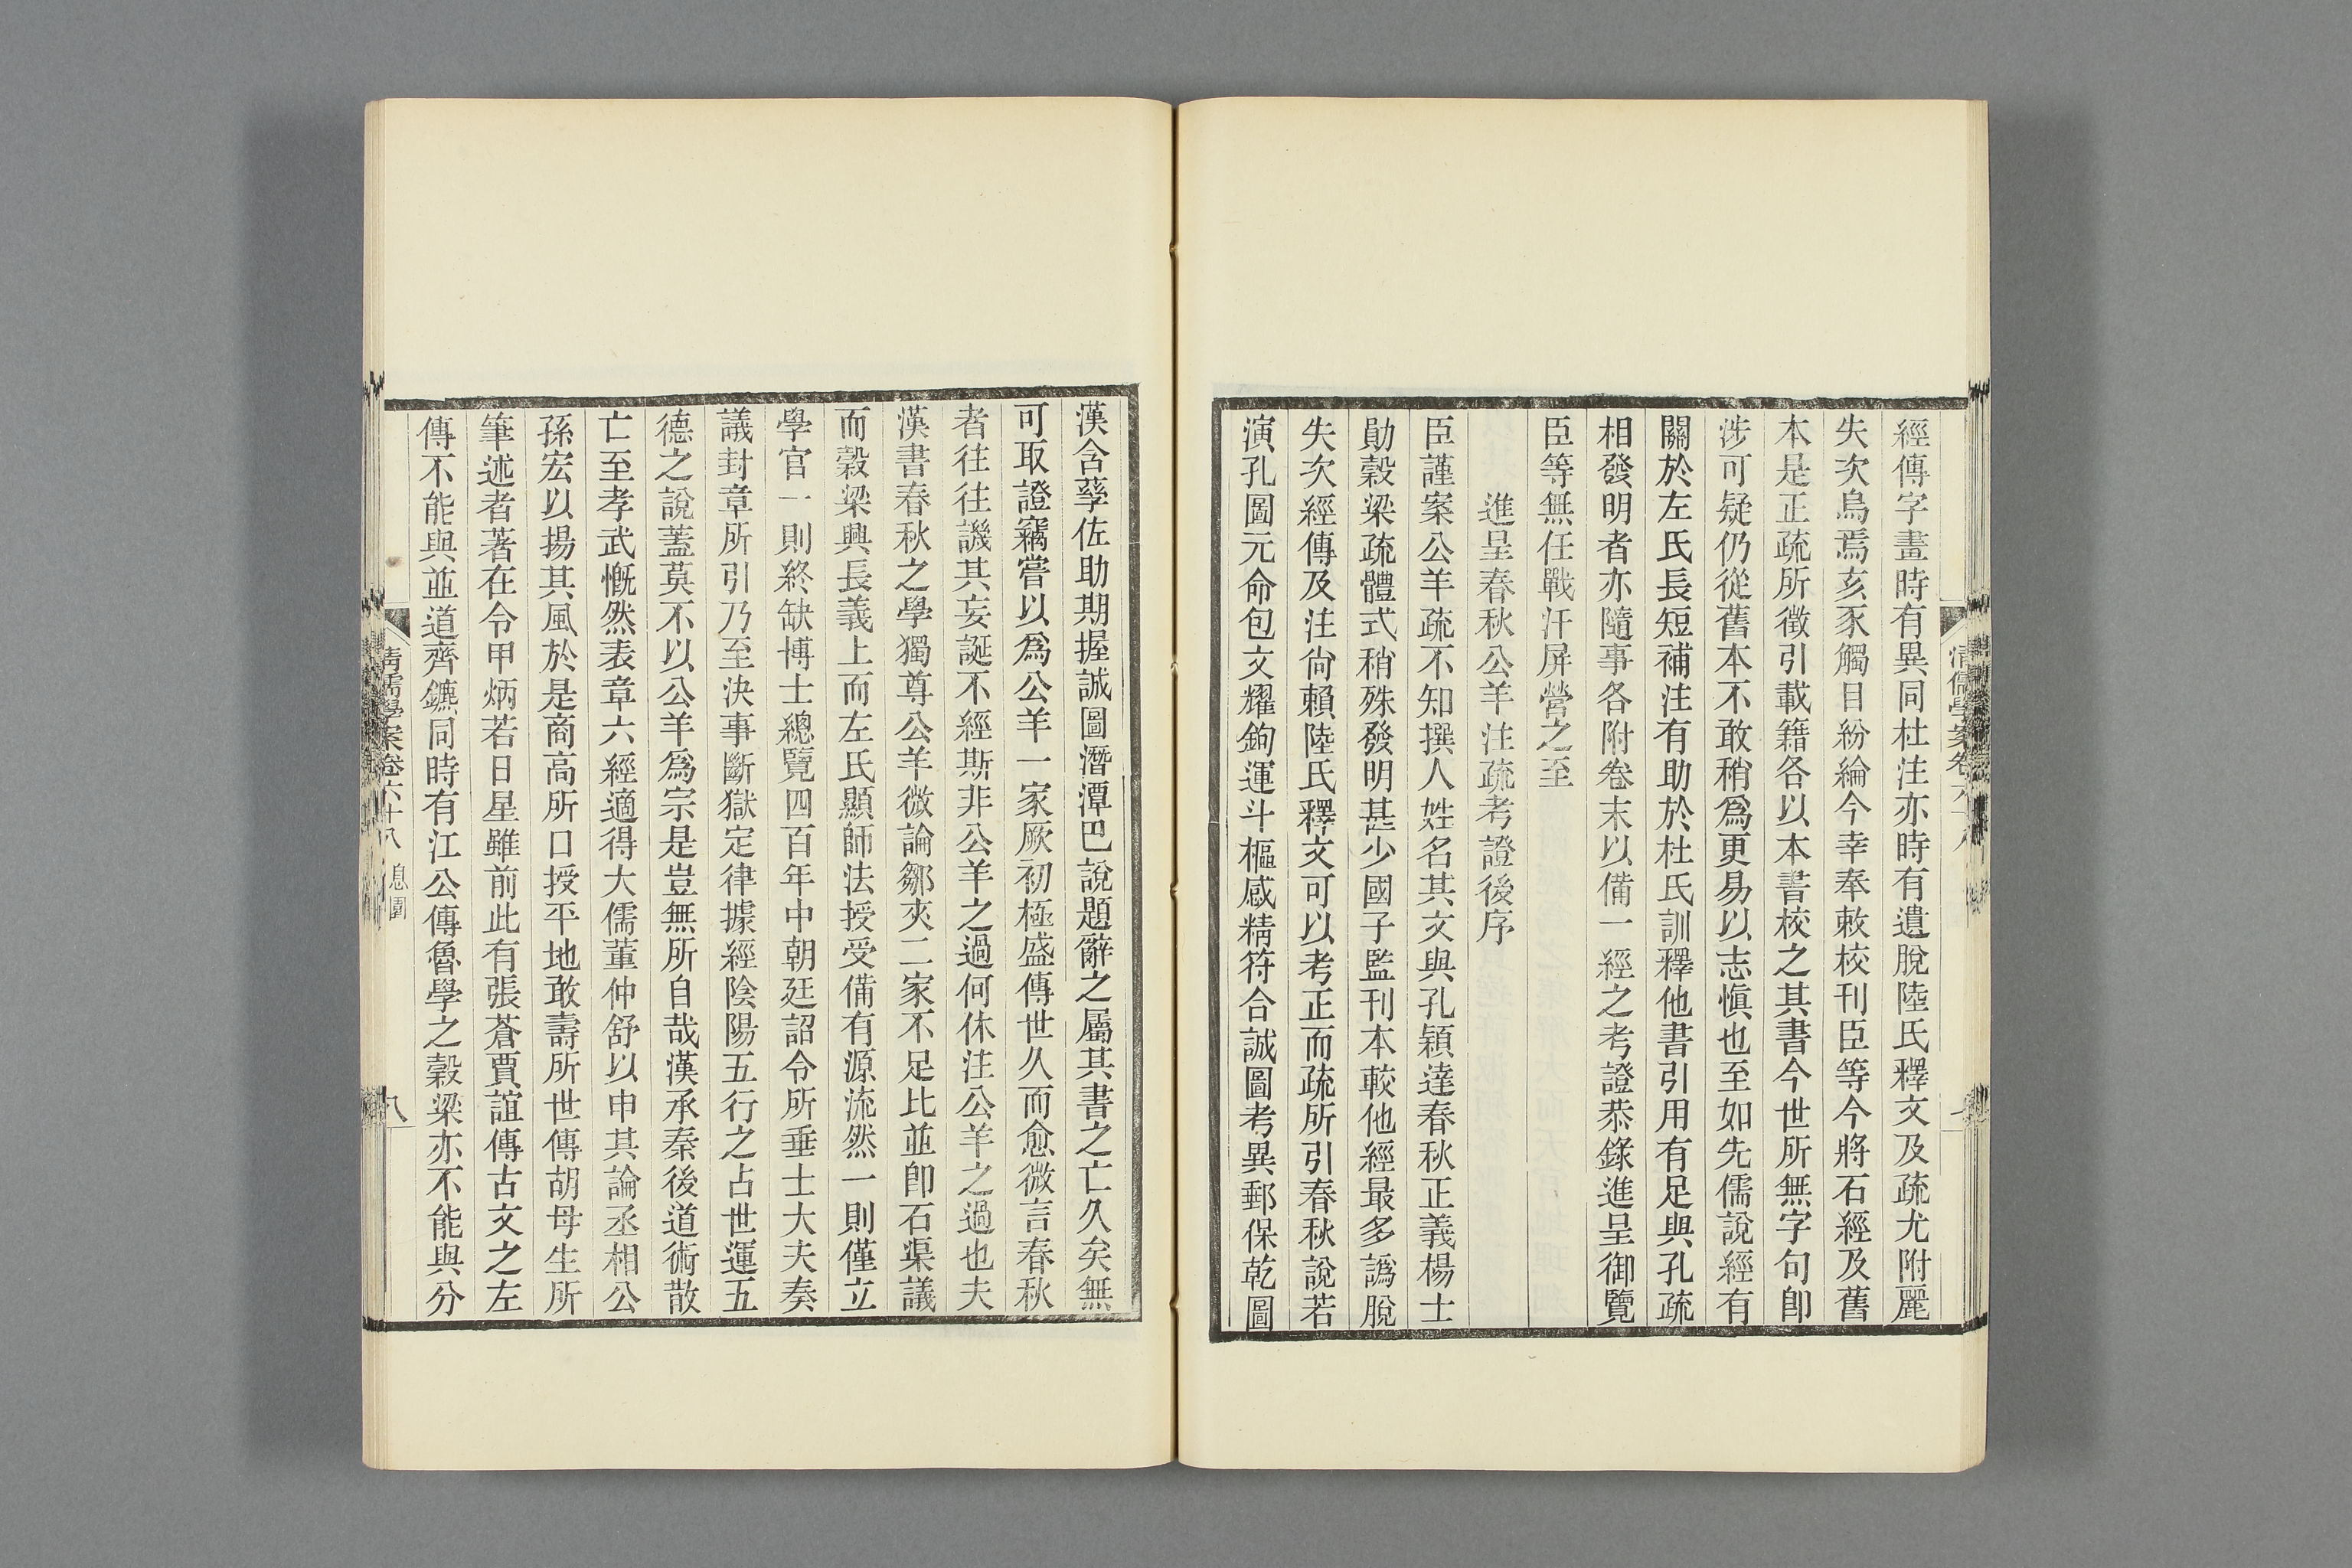 經傳字畫時有異同杜注亦時有遺脫陸氏釋文及疏尤附麗
失次烏焉亥豕觸目紛綸今幸奉敕校刊臣等今將石經及舊
本是正疏所徵引載籍各以本書校之其書今世所無字句卽
涉可疑仍從舊本不敢稍爲更易以志愼也至如先儒說經有
關於左氏長短補注有助於杜氏訓釋他書引用有足與孔疏
相發明者亦隨事各附卷末以備一經之考證恭錄進呈御覽
臣等無任戰汗屏營之至
進呈春秋公羊注疏考證後序
臣謹案公羊疏不知撰人姓名其文與孔穎達春秋正義楊士
勛穀梁疏體式稍殊發明甚少國子監刊本較他經最多譌脫
失次經傳及注尙賴陸氏釋文可以考正而疏所引春秋說若
演孔圖元命包文耀鉤運斗樞感精符合誠圖考異郵保乾圖
漢含孳佐助期握誠圖潛潭巴說題辭之屬其書之亡久矣無
可取證竊嘗以爲公羊一家厥初極盛傳世久而愈微言春秋
者往往譏其妄誕不經斯非公羊之過何休注公羊之過也夫
漢書春秋之學獨尊公羊微論鄒夾二家不足比並卽石渠議
而穀梁興長義上而左氏顯師法授受備有源流然一則僅立
學官一則終缺博士總覽四百年中朝廷詔令所垂士大夫奏
議封章所引乃至決事斷獄定律據經陰陽五行之占世運五
德之說蓋莫不以公羊爲宗是豈無所自哉漢承秦後道術散
亡至孝武慨然表章六經適得大儒董仲舒以申其論丞相公
孫宏以揚其風於是商高所口授平地敢壽所世傳胡母生所
筆述者著在令甲炳若日星雖前此有張蒼賈誼傳古文之左
傳不能與並道齊鑣同時有江公傳魯學之穀梁亦不能與分
清儒學案卷六十八 息園
八